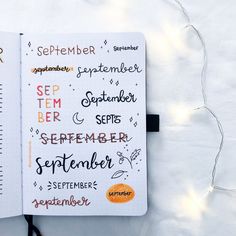 SEPTEMBER
September
september
september
SEP
TEM
BER
September
SEPT.
SEPTEMBER
september
SEPTEMBER
september
september